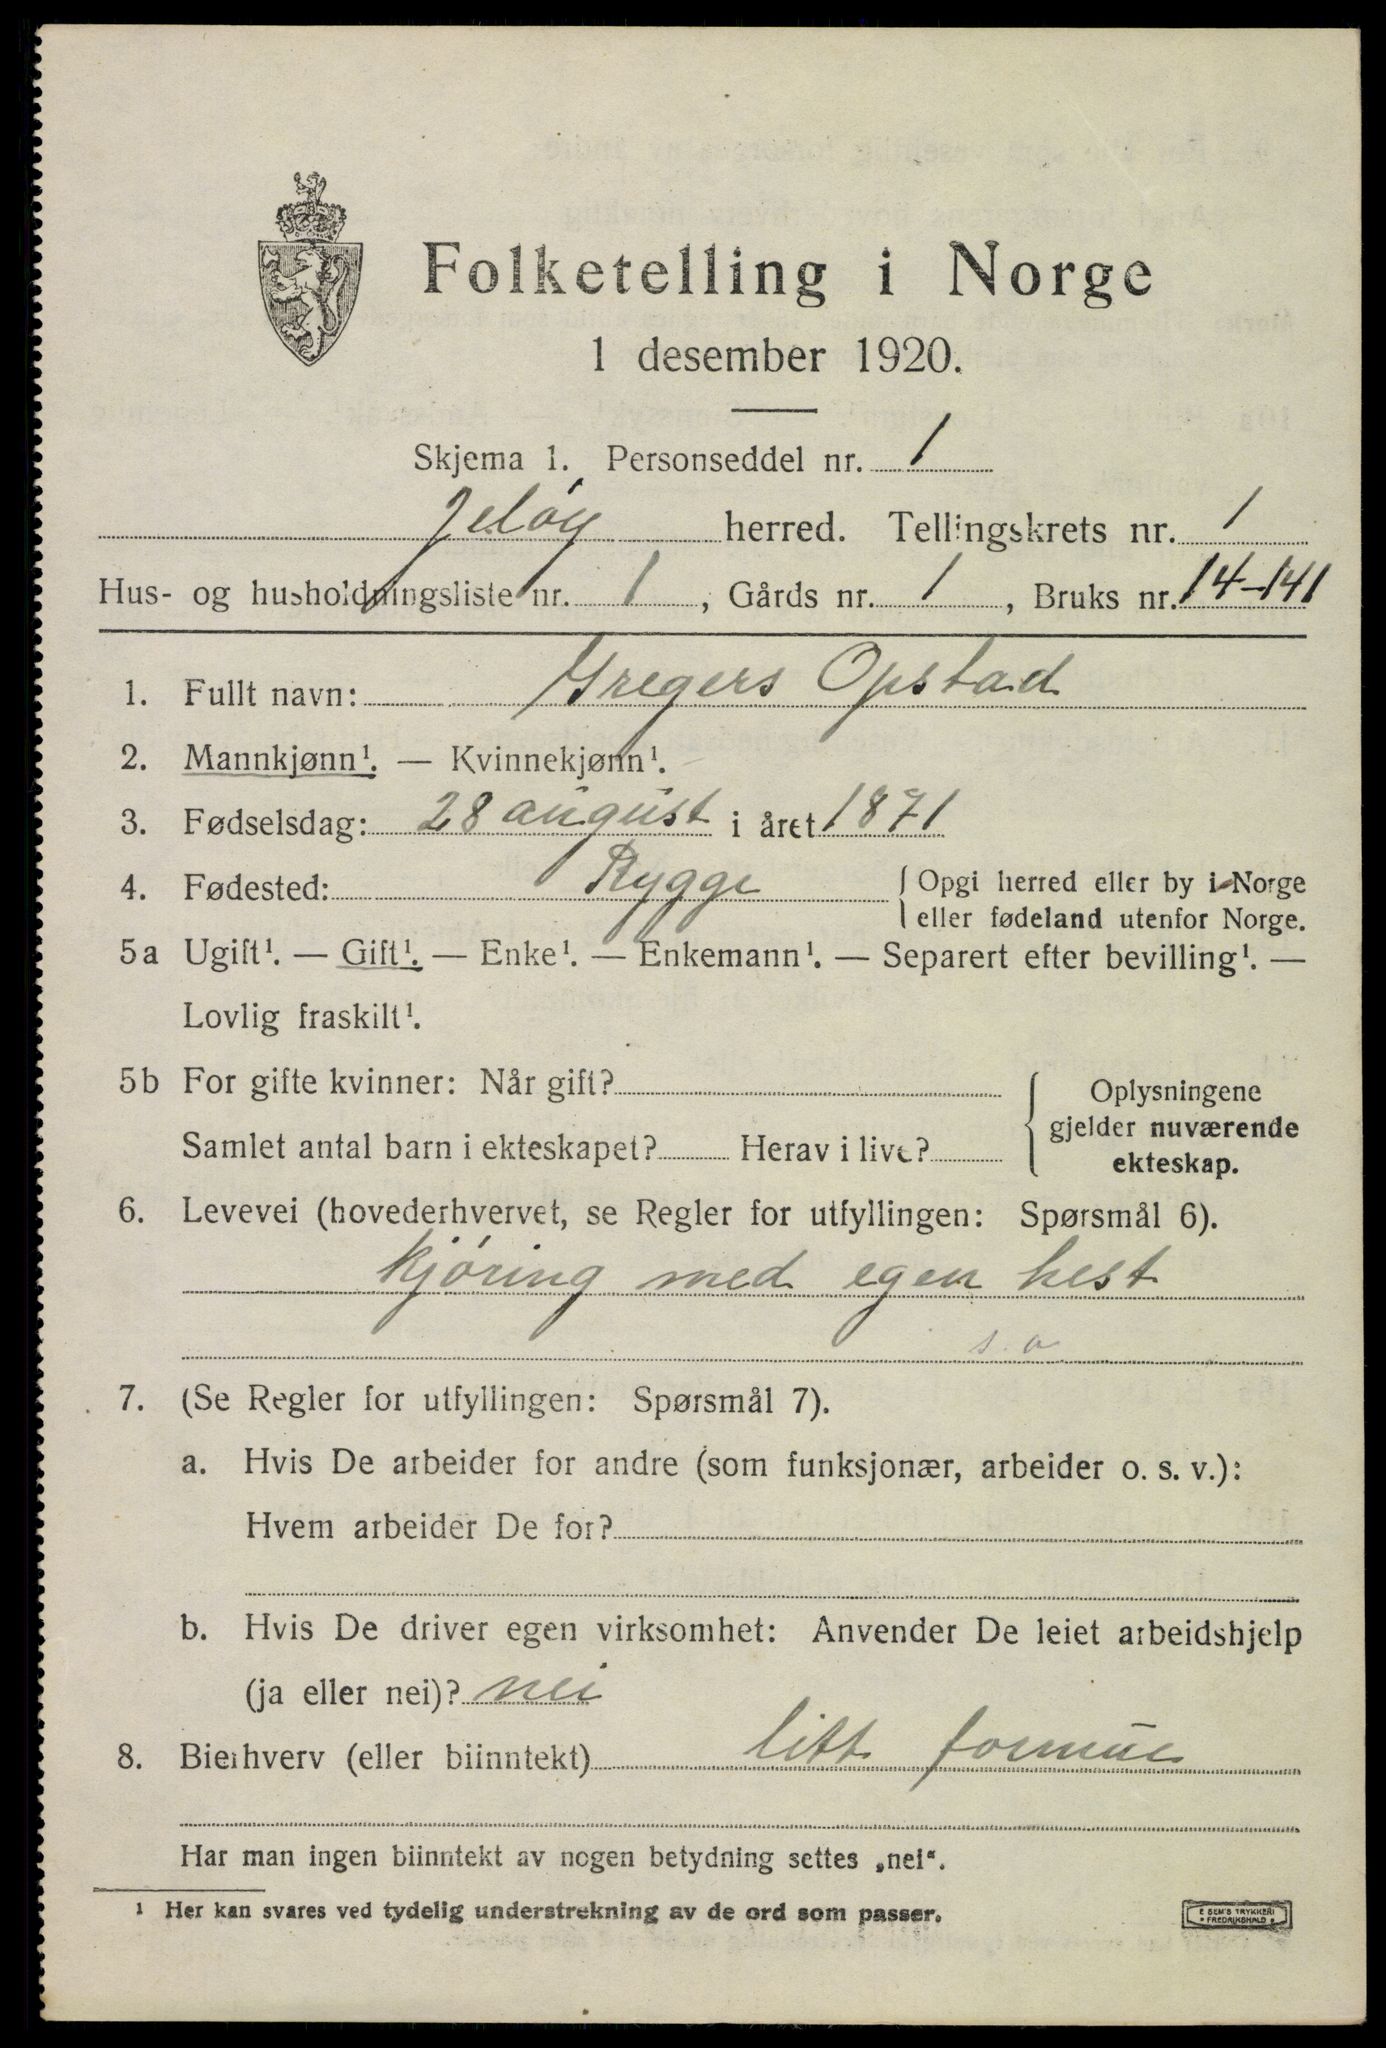 Folketelling i Norge
1 desember 1920.
Skjema 1. Personseddel nr. 1
Jeløy herred. Tellingskrets nr. 1
Hus- og husholdningsliste nr. 1, Gårds nr. 1, Bruks nr. 14-141
1. Fullt navn: Gregers Opstad
2. Mannkjønn¹. — Kvinnekjønn¹.
3. Fødselsdag: 28 august i året 1871
4. Fødested: Rygge { Opgi herred eller by i Norge
eller fødeland utenfor Norge.
5a Ugift¹. — Gift¹. — Enke¹. — Enkemann¹. — Separert efter bevilling¹. —
Lovlig fraskilt¹.
5b For gifte kvinner: Når gift?
Samlet antal barn i ekteskapet? Herav i live?
{ Oplysningene
gjelder nuværende
ekteskap.
6. Levevei (hovederhvervet, se Regler for utfyllingen: Spørsmål 6).
kjøring med egen hest
s. a
7. (Se Regler for utfyllingen: Spørsmål 7).
a. Hvis De arbeider for andre (som funksjonær, arbeider o. s. v.):
Hvem arbeider De for?
b. Hvis De driver egen virksomhet: Anvender De leiet arbeidshjelp
(ja eller nei)? nei
8. Bierhverv (eller biinntekt) litt formue
Har man ingen biinntekt av nogen betydning settes „nei“.
¹ Her kan svares ved tydelig understrekning av de ord som passer.
E SEM'S TRYKKERI
FREDRIKSHALD